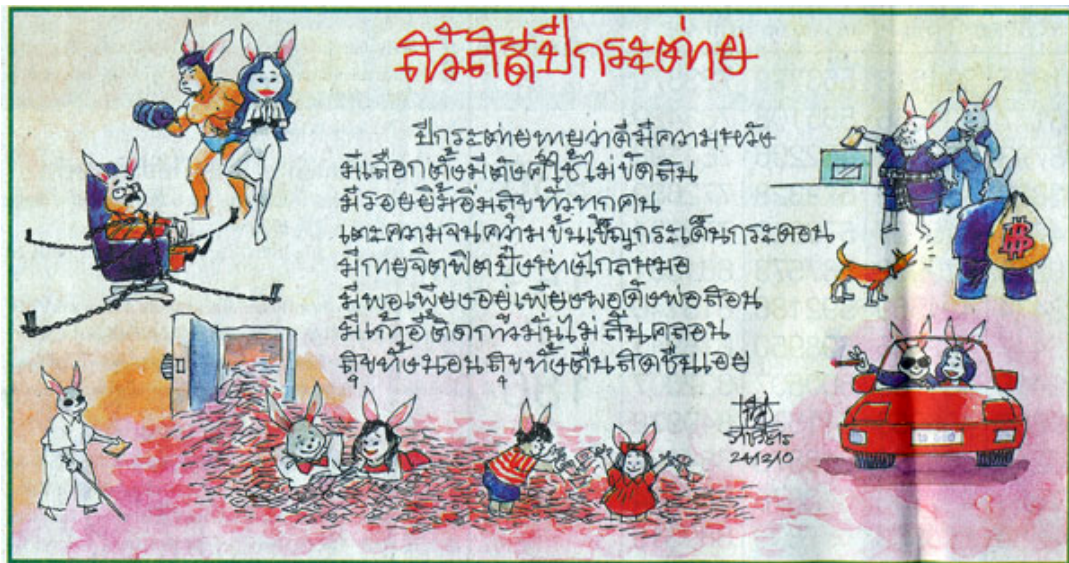 สวัสดีปีกระต่าย
ปีกระต่ายทายว่าดีมีความหวัง
มีเลือกตั้งมีตังค์ใช้ไม่ขัดสน
มีรอยยิ้มอิ่มสุขทั่วทุกคน
เตะความจนความข้นเข็ญกระเด็นกระดอน
มีกายจิตฟิตปั๋งห่างไกลหมอ
มีพอเพียงอยู่เพียงพอดังพ่อสอน
มีเก้าอี้ติดกาวมั่นไม่สั่นคลอน
สุขทั้งนอนสุขทั้งตื่นสดชื่นเอย
24/12/10